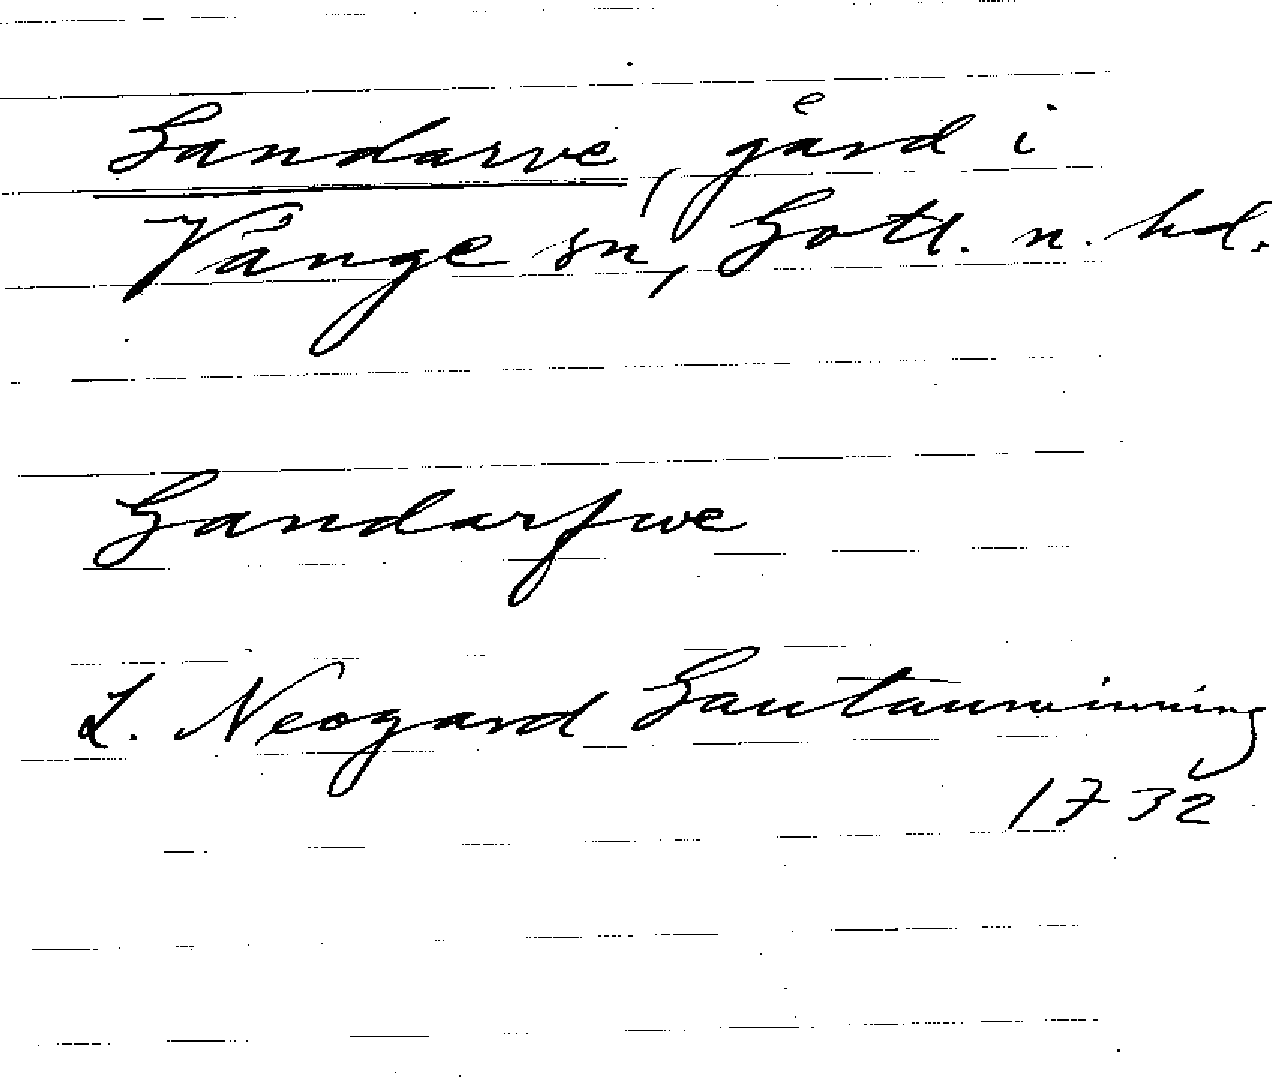 Gandarve, gård i
Vänge sn, Gotl. n. hd.
Gandarfwe
L. Neogard Gautauminning
1732